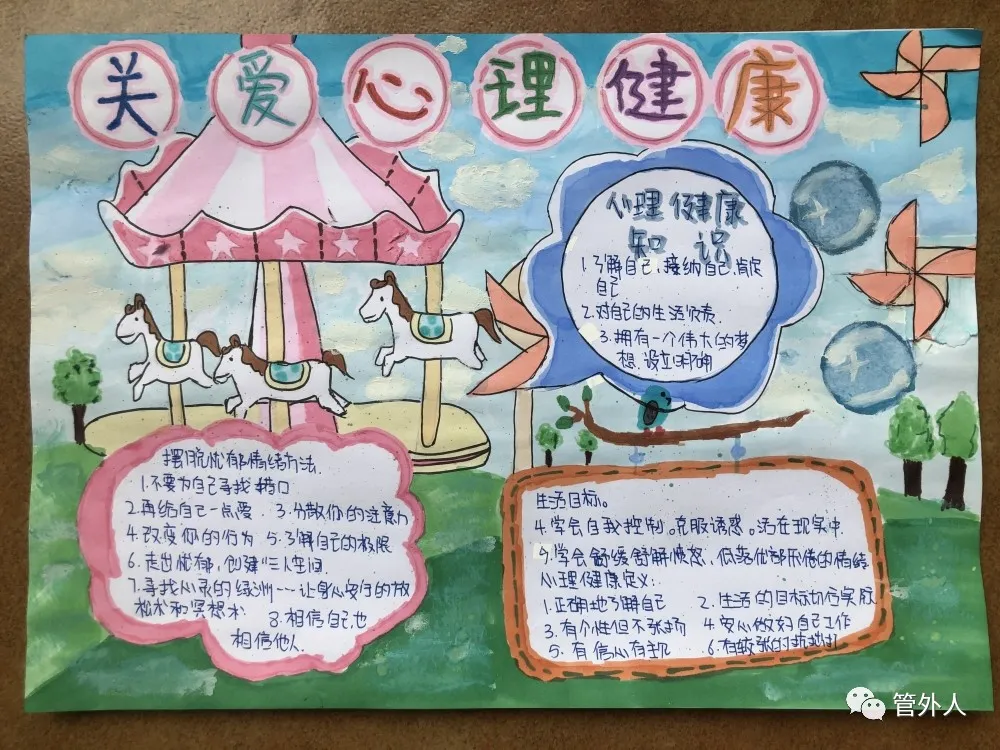 关爱心理健康
心理健康
知识
1.了解自己、接纳自己、肯定
自己
2.对自己的生活负责.
3.拥有一个伟大的梦
想.设立明确
摆脱忧郁情绪方法.
1.不要为自己寻找借口
2.再给自己一点爱.3.分散你的注意力
4.改变你的行为 5.了解自己的极限
6.走出忧郁,创建 人空间.
7.寻找心灵的绿洲——让身心安行的放
松术和冥想术 8.相信自己也
相信他人.
生活目标。
4.学会自我控制。克服诱惑。活在现实中.
5.学会舒缓舒解愤怒,低落忧郁 的情绪
心理健康定义:
1.正确地了解自己 2.生活的目标切合实际
3.有个性但不张扬 4.安心做好自己工作
5.有信心有主见 6.有较强的抗 力
管外人